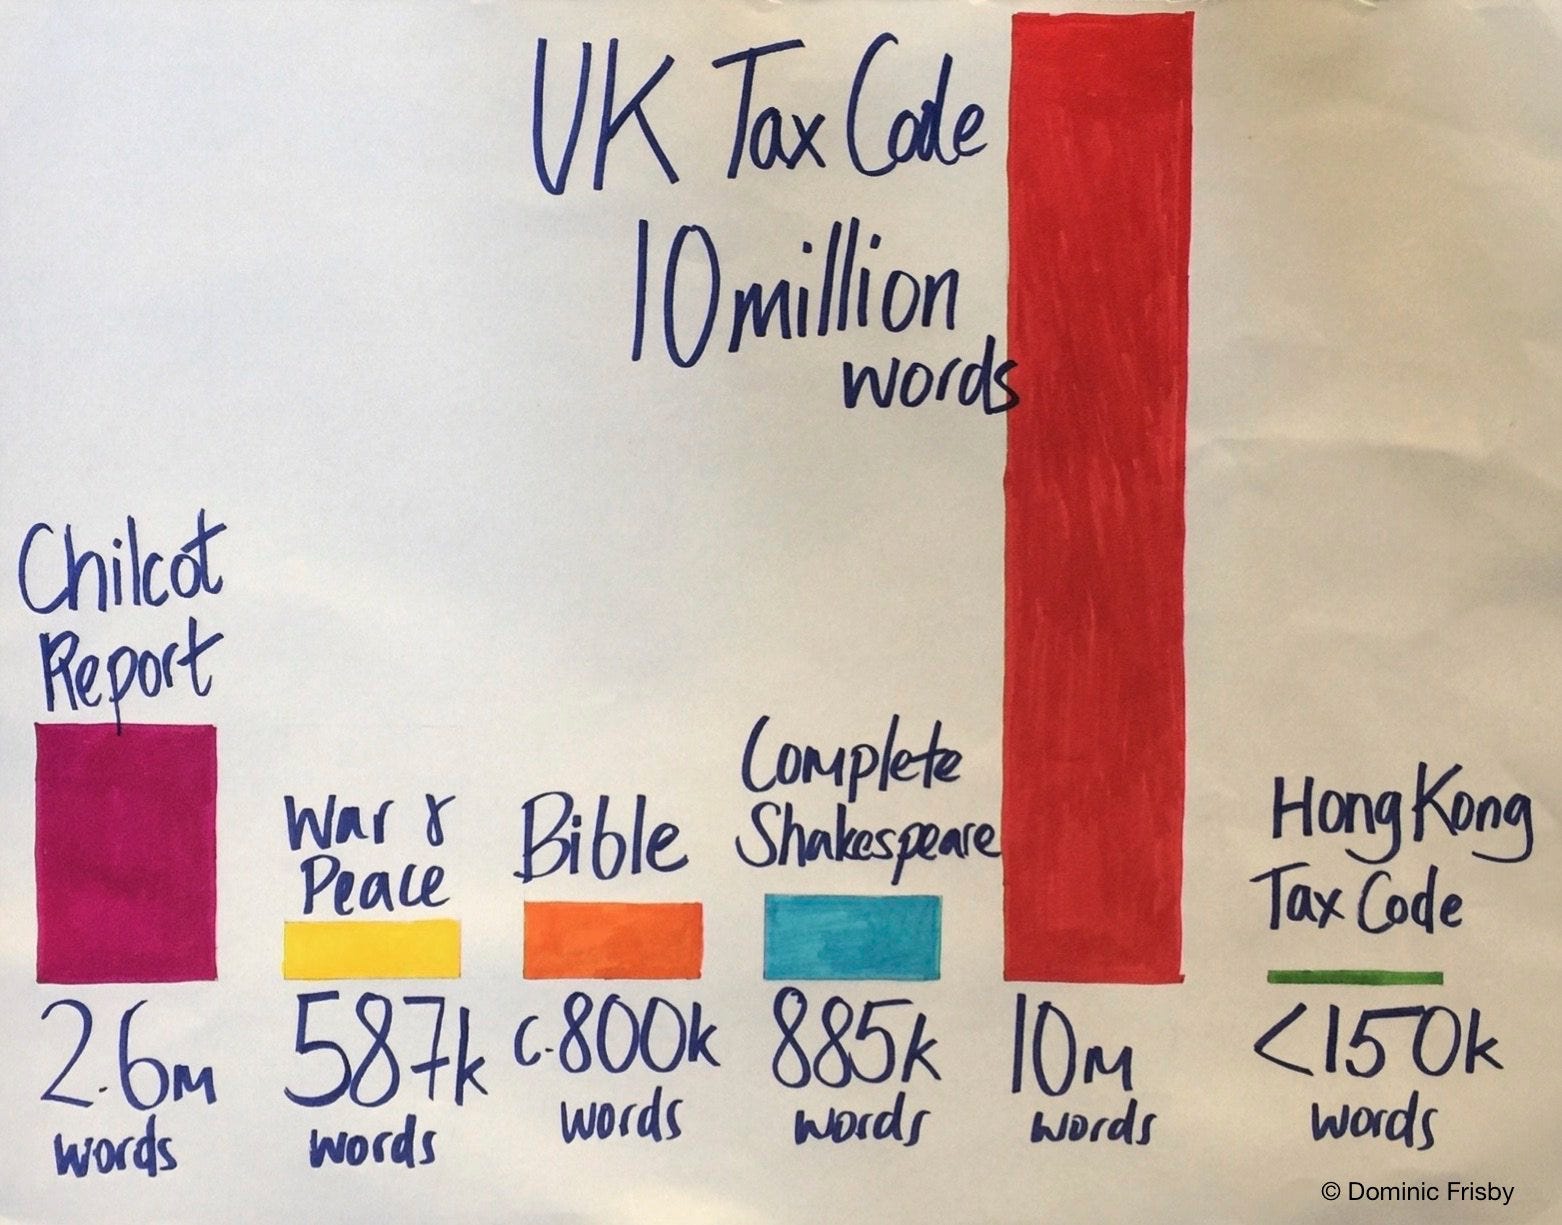 UK Tax Code
10 million
words
Chilcot
Report
War &
Peace
Bible
Complete
Shakespeare
Hong Kong
Tax Code
2.6m
words
587k
words
c.800k
words
885k
words
10m
words
<150k
words
© Dominic Frisby